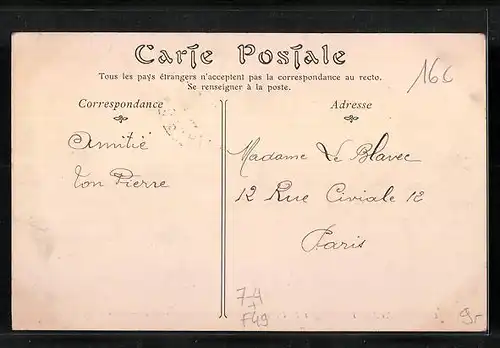 Carte Postale
Tous les pays étrangers n'acceptent pas la correspondance au recto.
Se renseigner à la poste.
16c
Correspondance
Adresse
Amitié
ton Pierre
Madame Le Blavec
12 Rue Civiale 12
Paris
7-4
F49
9r